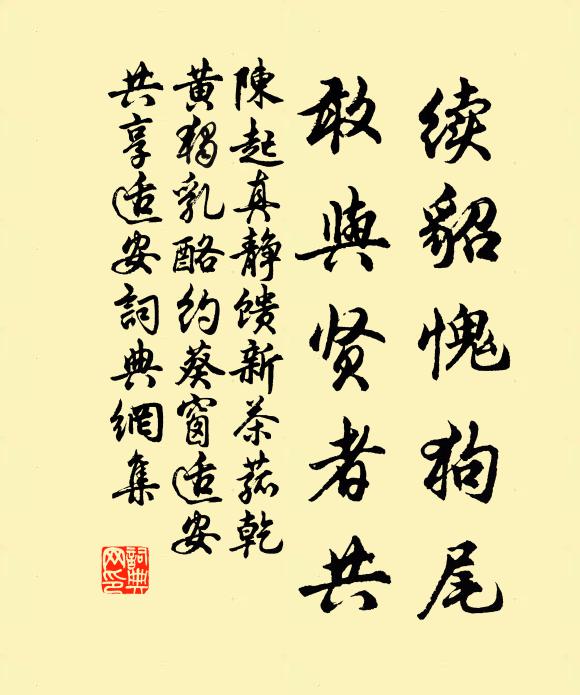 续貂愧狗尾
敢與贤者共
陳起真静馈新茶菰乾
黄獨乳酪约葵窗适安
共享适安詞典網集
詞典網印